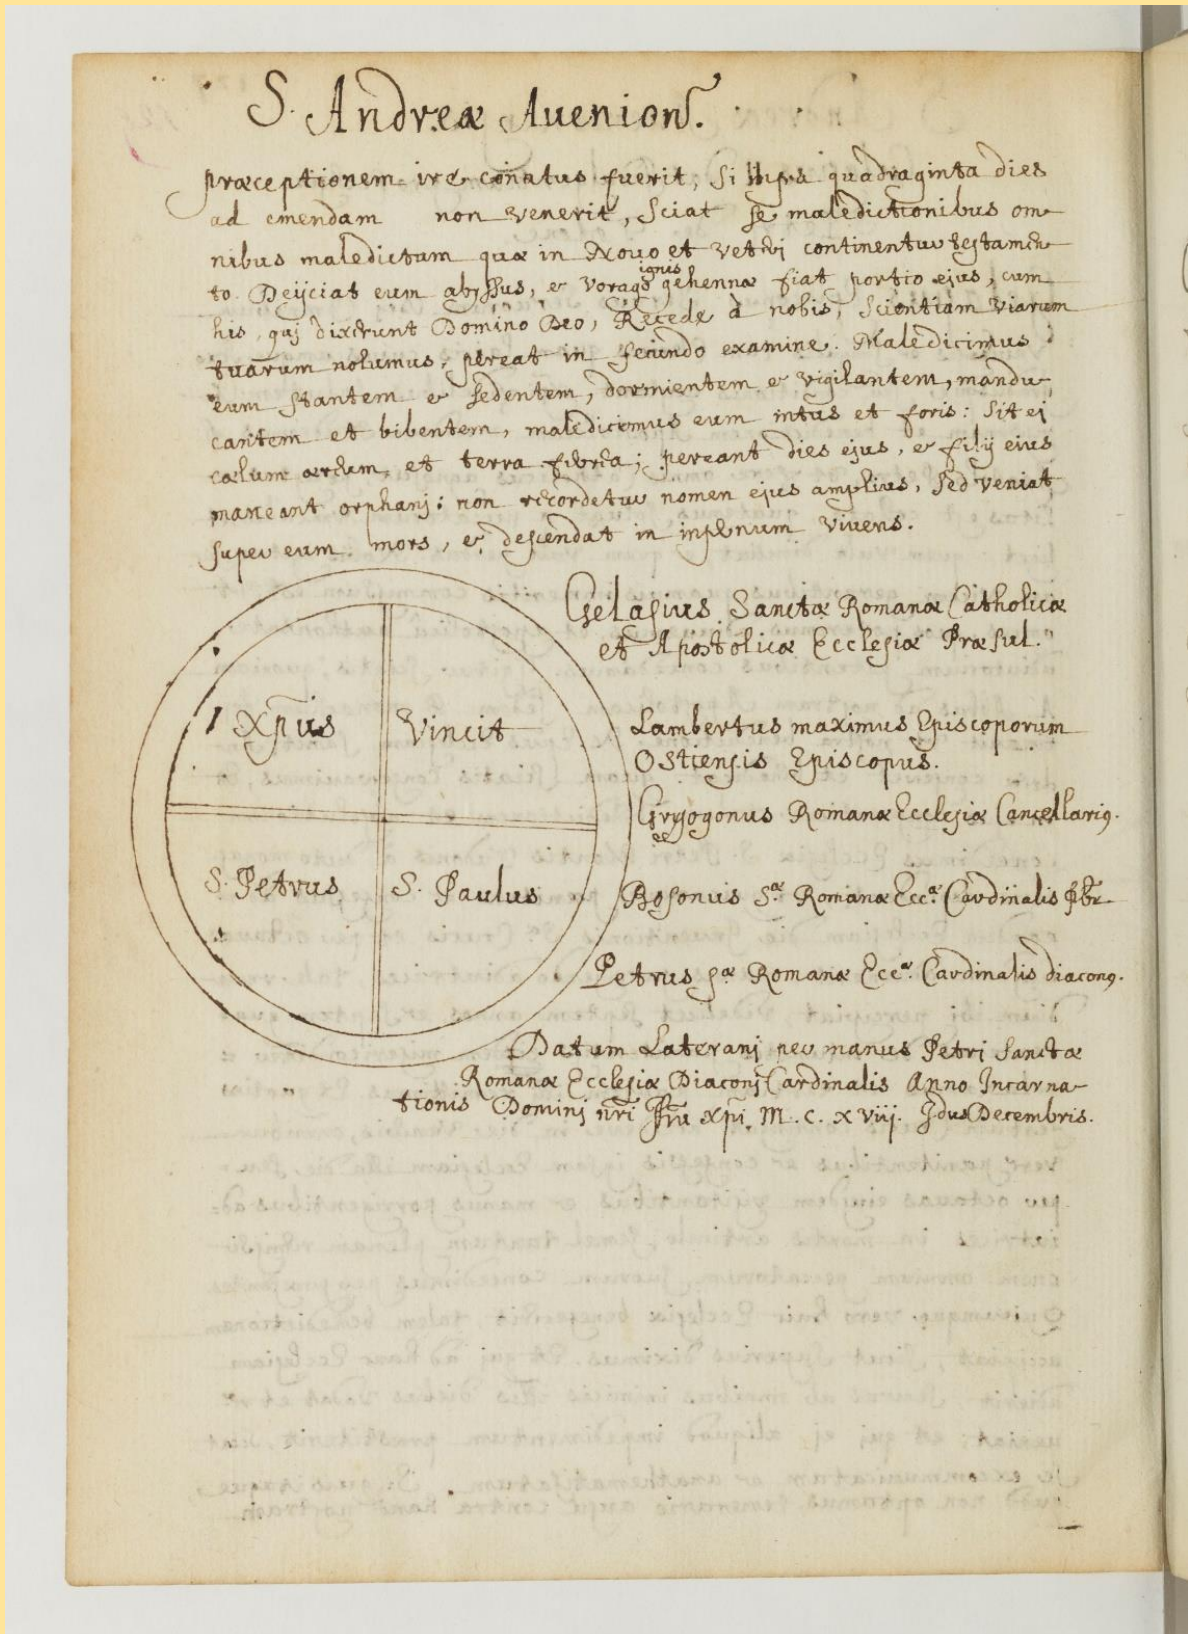 S. Andreæ Avenions.
præceptionem ire conatus fuerit, si infra quadraginta dies
ad emendam non venerit, sciat se maledictionibus om-
nibus maledictum quæ in Novo et veteri continentur testamen-
to. Deijciat eum abyssus, et vorago ignis gehennæ fiat portio ejus, cum
his, quj dixerunt Domino Deo, Recede a nobis, scientiam viarum
tuarum nolumus, pereat in secundo examine. Maledicimus
eum stantem et sedentem, dormientem et vigilantem, mandu-
cantem et bibentem, maledicimus eum intus et foris: sit ej
cælum æreum et terra ferrea; pereant dies ejus, et filij eius
maneant orphanj: non recordetur nomen ejus amplius, sed veniat
super eum mors, et descendat in infernum vivens.
Gelasius Sanctæ Romanæ Catholicæ
et Apostolicæ Ecclesiæ Præsul.
Xpus Vincit
Lambertus maximus Episcoporum
Ostiensis Episcopus.
Grysogonus Romanæ Ecclesiæ Cancellarius.
S. Petrus S. Paulus
Bosonus Sæ Romanæ Eccæ Cardinalis pbr
Petrus sæ Romanæ Eccæ. Cardinalis diaconus.
Datum Lateranj per manus Petri sanctæ
Romanæ Ecclesiæ Diaconj Cardinalis Anno Incarna-
tionis Dominj nri Jhu Xpi. M. C. XVIIj. Idus Decembris.